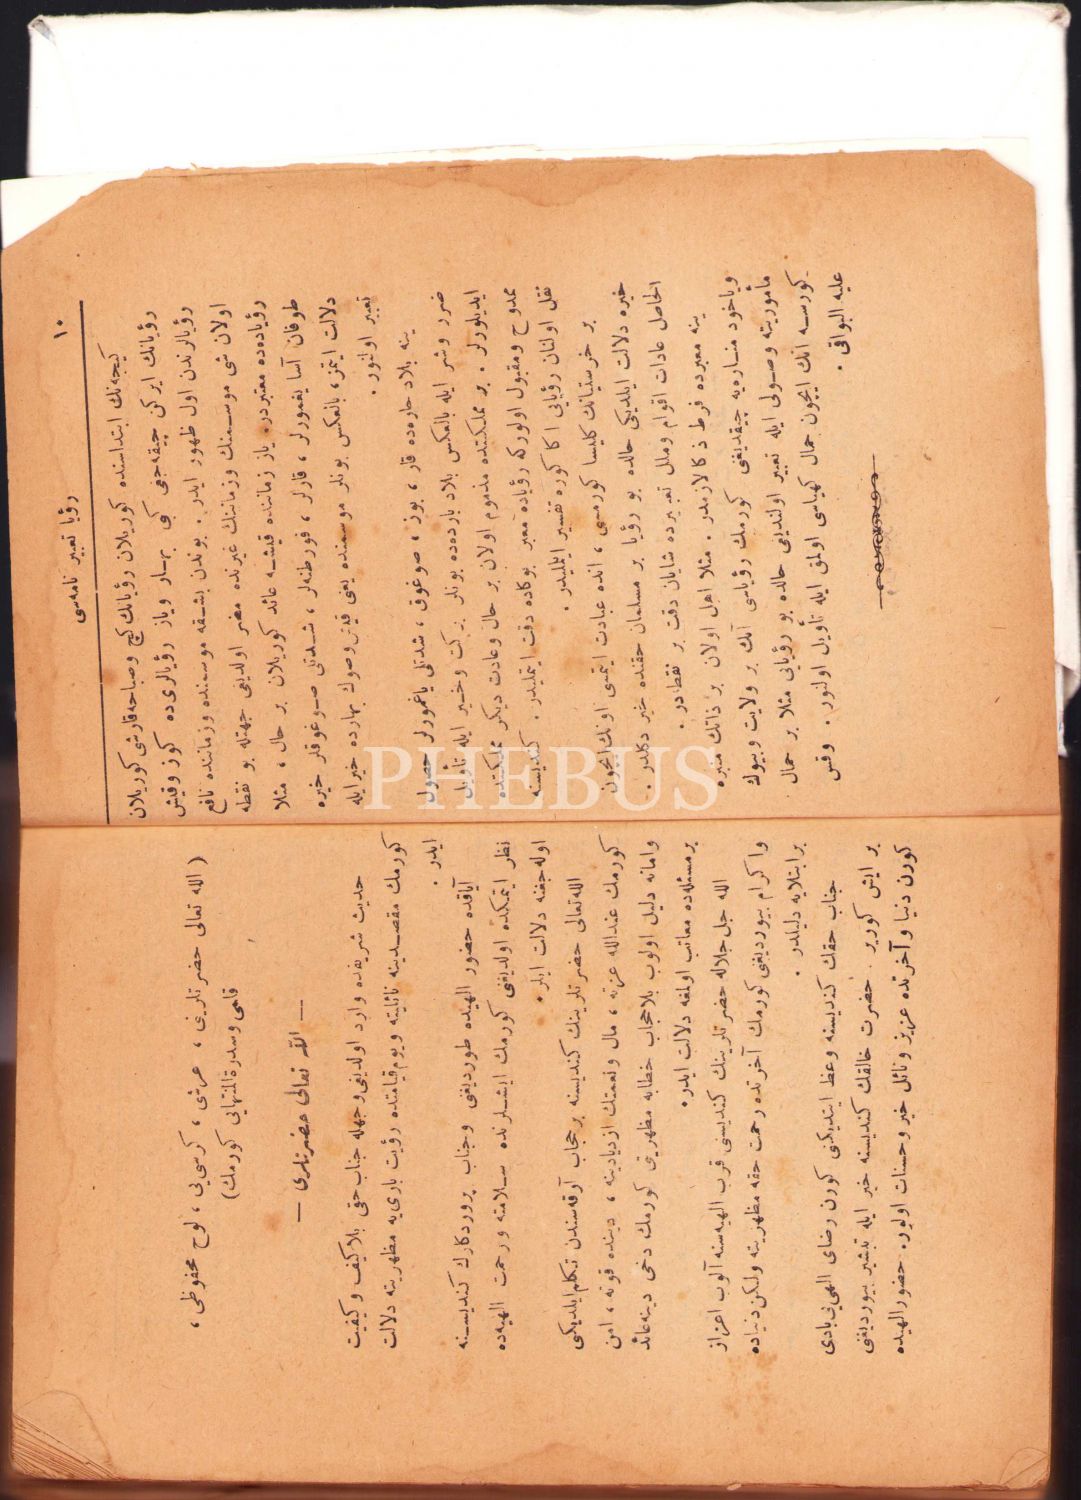 ١٠
رؤيا تعبير نامه‌سى
كيجه‌نك ابتداسنده كوريلان رؤيانك كچ وصباحه قارشى كوريلان
رؤيانك ايركن چيقه‌جغى كبى بهار وياز رؤيالرى ده كوز وقيش
رؤيالرندن اول ظهور ايدر. بوندن بشقه موسمنده وزماننده نافع
اولان شى موسمنك وزماننك غيرنده مضر اولديغى جهتله بو نقطه
رؤياده‌ده معتبردر. ياز زماننده قيشه عائد كوريلان بر حال ، مثلا
طوفان آسا يغمورلر ، قارلر ، فورطنه‌لر ، شدتلى صوغوقلر خيره
دلالت ايتمز ، بالعكس بونلر موسمنده يعنى قيش وصوك بهارده خير ايله
تعبير اولنور.
ينه بلاد حاره‌ده قار ، بوز ، صوغوق ، شدتلى ياغمورلر حصول
ضرر وشر ايله بالعكس بلاد بارده‌ده بونلر بركت وخير ايله تأويل
ايديلورلر. بر مملكتده مذموم اولان بر حال وعادت ديكر مملكتده
ممدوح ومقبول اولورکه رؤياده معبر بوكاده دقت ايتمليدر. كنديسنه
نقل اولنان رؤيايى اكا كوره تفسير ايلمليدر.
بر خرستيانك كليسا كورمسى ، انده عبادت ايتمسى اونك ايچون
خيره دلالت ايلديكى حالده بو رؤيا بر مسلمان حقنده خير دكلدر.
الحاصل عادات اقوام وملل تعبيرده شايان دقت بر نقطه‌در.
ينه معبرده فرط ذكا لازمدر. مثلا اهل اولان بر ذاتك منبره
وياخود مناره‌يه چيقديغى كورمك رؤياسى آنك بر ولايت وبيوك
مأموريته وصولى ايله تعبير اولنديغى حالده بو رؤيايى مثلا بر حمال
كورسه انك ايچون حمال كهياسى اولمق ايله تأويل اولنور. وقس
عليه البواقى.
(الله تعالى حضرتلرينى ، عرشى ، كرسى‌يى ، لوح محفوظى ،
قلمى وسدرةالمنتهايى كورمك)
— الله تعالى حضرتلرى —
حديث شريفده وارد اولديغى وجهله جناب حقى بلا كيف وكيفيت
كورمك مقصدينه نائليته ويوم قيامتده رؤيت بارى‌يه مظهريته دلالت
ايدر.
آياقده حضور الهيده طورديغى وجناب پروردكارك كنديسنه
نظر ايتمكده اولديغى كورمك ايشلرنده سلامته ورحمت الهيه‌ده
اوله‌جغنه دلالت ايلر.
الله تعالى حضرتلرينك كنديسنه بر حجاب آرقه‌سندن تكلم ايلديكى
كورمك عندالله عزته ، مال ونعمتك ازديادينه ، دينده قوته ، امن
وامانه دليل اولوب بلاحجاب خطابه مظهريتى كورمك دخى دينه عائد
بر مسئله‌ده معاتب اولمغه دلالت ايدر.
الله جل جلاله حضرتلرينك كنديسنى قرب الهيه‌سنه آلوب اعزاز
واكرام بيورديغى كورمك آخرتده رحمت حقه مظهريته ولكن دنياده
بر ابتلايه دليلدر.
جناب حقك كنديسنه وعظ ايتديكنى كورن رضاى الهى‌يى بادى
بر ايش كورير. حضرت خالقك كنديسنه خير ايله تبشير بيورديغنى
كورن دنيا وآخرتده عزيز ونائل خير وحسنات اولور. حضور الهيده
PHEBUS